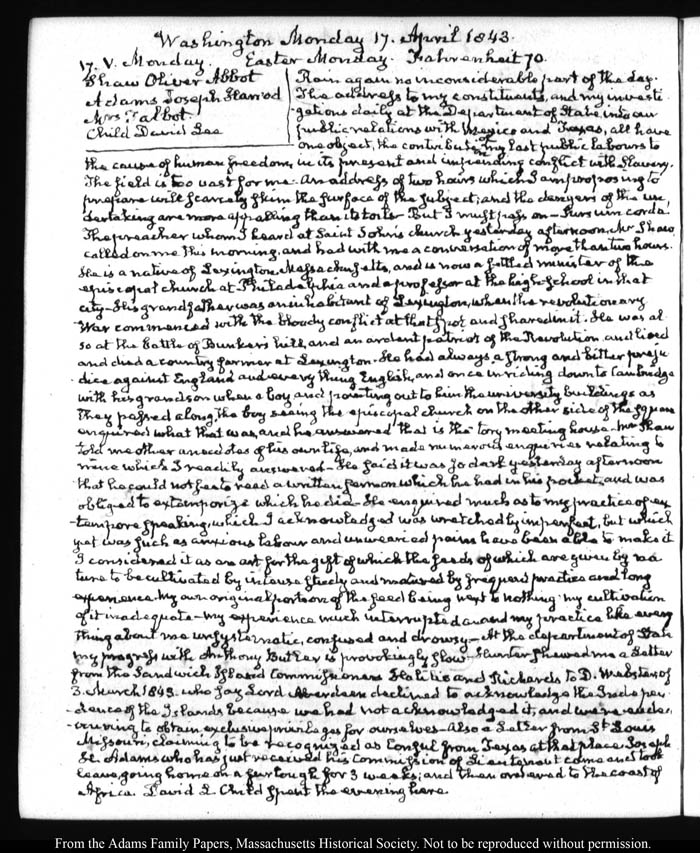 Washington Monday 17. April 1843.
17. V. Monday. Easter Monday. Fahrenheit 70.
Shaw Oliver Abbot
Adams Joseph Harrod
Mrs Talbot.
Child David Lee
Rain again no inconsiderable part of the day.
The address to my constituents, and my investi
gations daily at the Department of State, into our
public relations with Mexico and Texas, all have
one object, the contribution of my last public labours to
the cause of human freedom, in its present and impending conflict with Slavery.
The field is too vast for me. An address of two hours which I am proposing to
prepare will scarcely skim the surface of the subject, and the dangers of the un,
dertaking are more appalling than its toils. But I must press on – Sursum corda.
The preacher whom I heard at Saint John's church yesterday afternoon, Mr Shaw
called on me this morning, and had with me a conversation of more than two hours.
He is a native of Lexington, Massachusetts, and is now a settled minister of the
episcopal church at Philadelphia and a professor at the high-School in that
city – His grandfather was an inhabitant of Lexington, when the revolutionary
War commenced with the bloody conflict at that spot and shared in it. He was al
so at the battle of Bunker's hill, and an ardent patriot of the Revolution, and lived
and died a country farmer at Lexington. He had always a strong and bitter preju
dice against England and every thing English, and once in riding down to Cambridge
with his grandson when a boy and pointing out to him the university buildings as
they passed along, the boy seeing the episcopal church on the other side of the square
enquired what that was, and he answered that is the tory meeting house – Mr Shaw
told me other anecdotes of his own life, and made numerous enquiries relating to
mine which I readily answered – He said it was so dark yesterday afternoon
that he could not see to read a written sermon which he had in his pocket, and was
obliged to extemporize which he did – He enquired much as to my practice of ex
tempore speaking, which I acknowledged was wretchedly imperfect, but which
yet was such as anxious labour and unwearied pains have been able to make it
I considered it as an art for the gift of which the seeds of which are given by na
ture to be cultivated by intense study and matured by frequent practice and long
experience. My own original portion of the seed being next to nothing my cultivation
of it inadequate – my experience much interrupted and my practice like every
thing about me unsystematic, confused and drowsy – At the department of State
my progress with Anthony Butler is provokingly slow – Hunter shewed me a Letter
from the Sandwich Island Commissioners Haalilio and Richards to D. Webster of
3. March 1843. who say Lord Aberdeen declined to acknowledge the Indepen
dence of the Islands because we had not acknowledged it, and were endea
vouring to obtain exclusive privileges for ourselves – Also a Letter from St Louis
Missouri, claiming to be recognized as Consul from Texas at that place. Joseph
H. Adams who has just received his Commission of Lieutenant came and took
leave, going home on a furlough for 3 weeks, and then ordered to the coast of
Africa. David L Child spent the evening here.
From the Adams Family Papers, Massachusetts Historical Society. Not to be reproduced without permission.